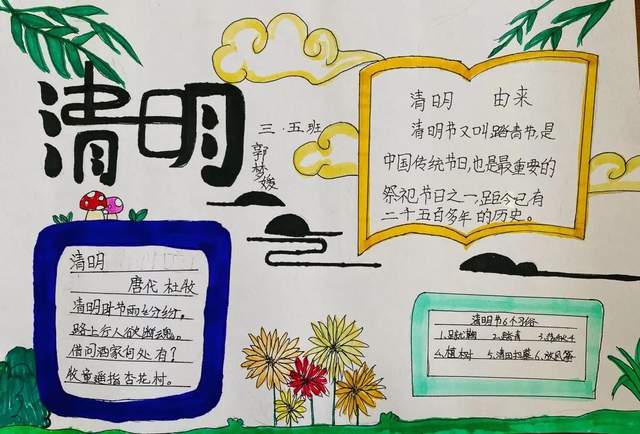 清明
三.五班
郭梦媛
清明 由来
清明节又叫踏青节,是
中国传统节日,也是最重要的
祭祀节日之一,距今已有
二千五百多年的历史。
清明
唐代 杜牧
清明时节雨纷纷。
路上行人欲断魂。
借问酒家何处有?
牧童遥指杏花村。
清明节6个习俗
1.荡秋千 2.踏青
4.植树 5.清明扫墓 6.放风筝